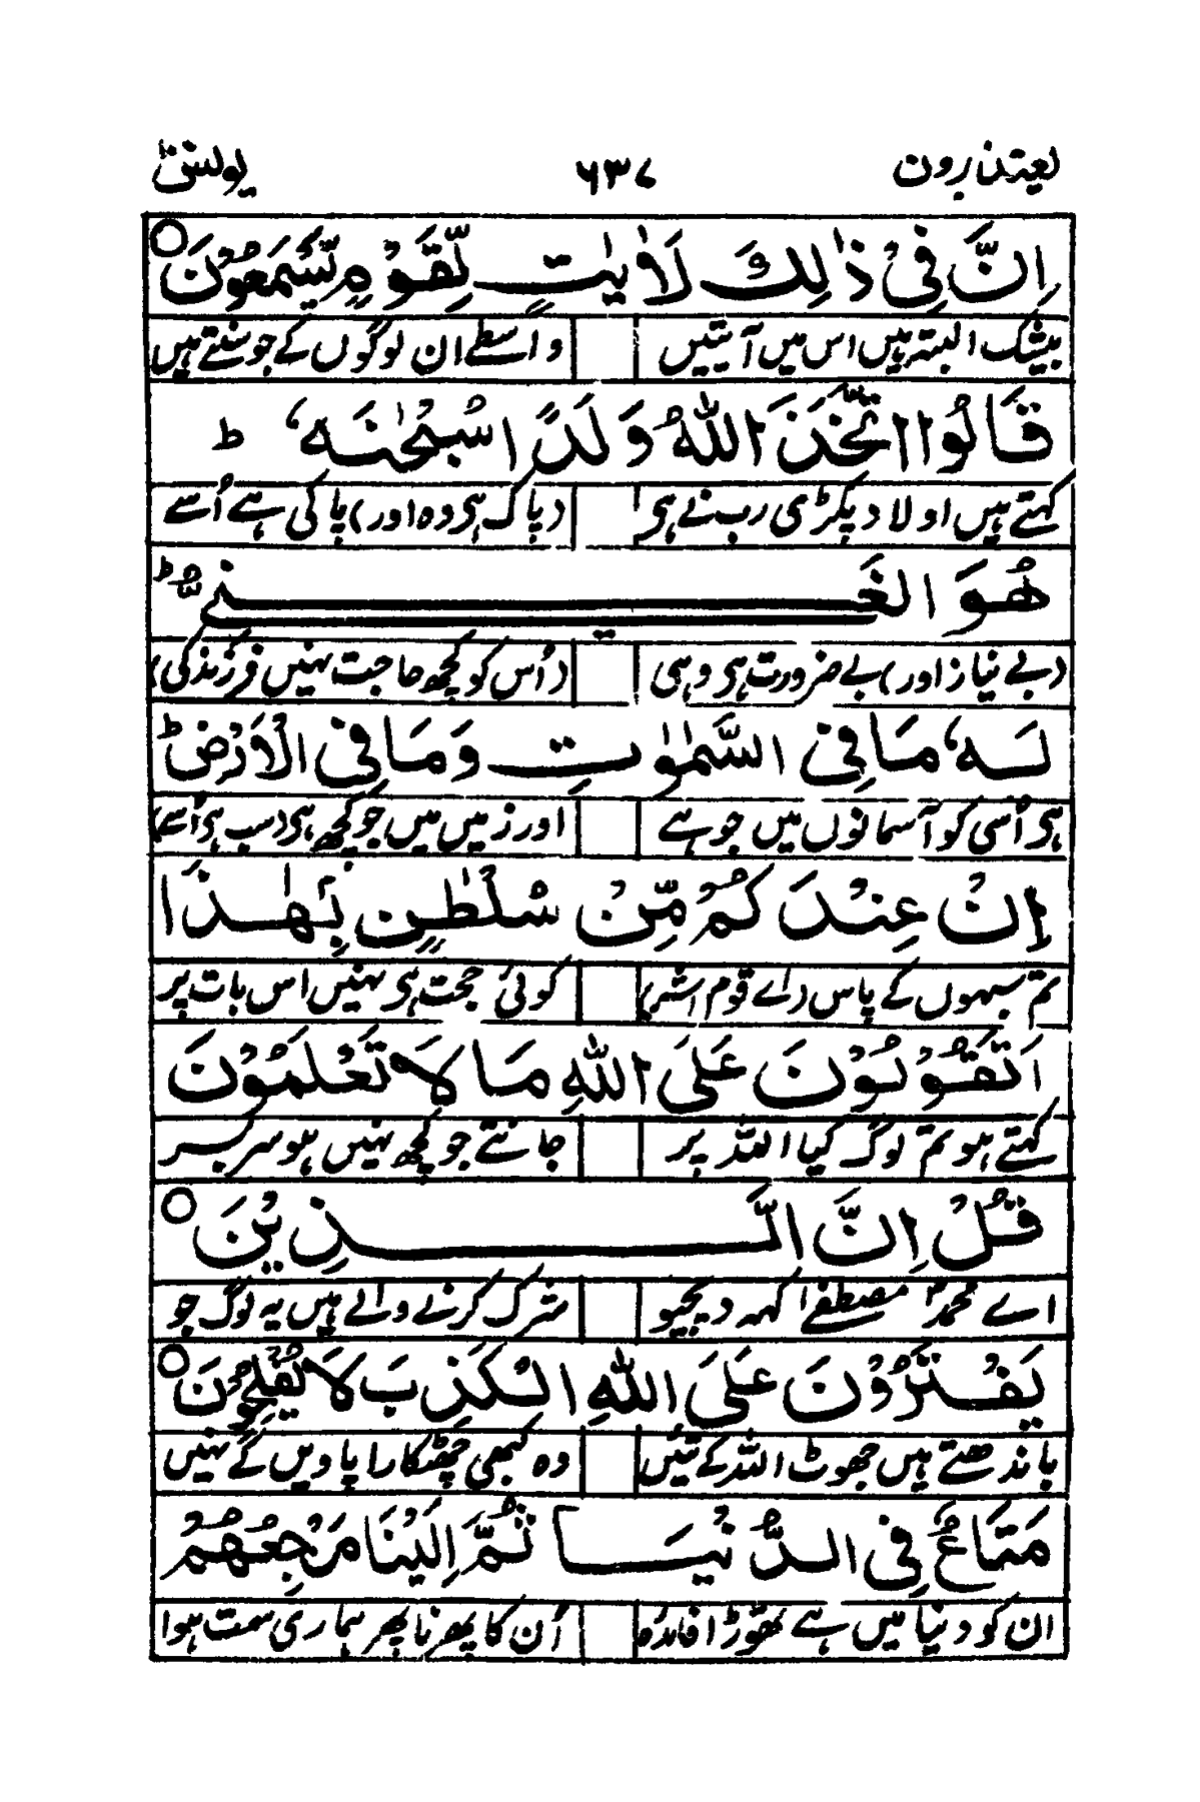 یعتذرون ۶۳۷ یونس ۱۰
اِنَّ فِیْ ذٰلِكَ لَاٰیٰتٍ لِّقَوْمٍ یَّسْمَعُوْنَ ○
بیشک البتہ ہیں اس میں آیتیں واسطے ان لوگوں کے جو سنتے ہیں
قَالُوا اتَّخَذَ اللّٰهُ وَلَدًا سُبْحٰنَهٗ ؕ
کہتے ہیں اولاد پکڑی رب نے ہی (پاک ہی وہ اور) پاکی ہے اُسے
هُوَ الْغَنِیُّ ؕ
(بے نیاز اور) بے ضرورت ہی وہی (اُس کو کچھ حاجت نہیں فرزند کی)
لَهٗ مَا فِی السَّمٰوٰتِ وَمَا فِی الْاَرْضِ ؕ
ہی اُسی کو آسمانوں میں جو ہے اور زمیں میں جو کچھ ہی (سب ہی اُسے)
اِنْ عِنْدَكُمْ مِّنْ سُلْطٰنٍ بِۭهٰذَا
تم سبھوں کے پاس (اے قوم اشر) کوئی حجت ہی نہیں اس بات پر
اَتَقُوْلُوْنَ عَلَی اللّٰهِ مَا لَا تَعْلَمُوْنَ
کہتے ہو تم لوگ کیا اللہ پر جانتے جو کچھ نہیں ہو سربسر
قُلْ اِنَّ الَّذِیْنَ ○
اے محمدؐ مصطفےٰ کہہ دیجیو شرک کرنے والے ہیں یہ لوگ جو
یَفْتَرُوْنَ عَلَی اللّٰهِ الْكَذِبَ لَا یُفْلِحُوْنَ ○
باندھتے ہیں جھوٹ اللہ کے تئیں وہ کبھی چھٹکارا پاویں گے نہیں
مَتَاعٌ فِی الدُّنْیَا ثُمَّ اِلَیْنَا مَرْجِعُهُمْ
ان کو دنیا میں ہے تھوڑا فائدہ اُن کا پھرنا پھر ہماری سمت ہوا